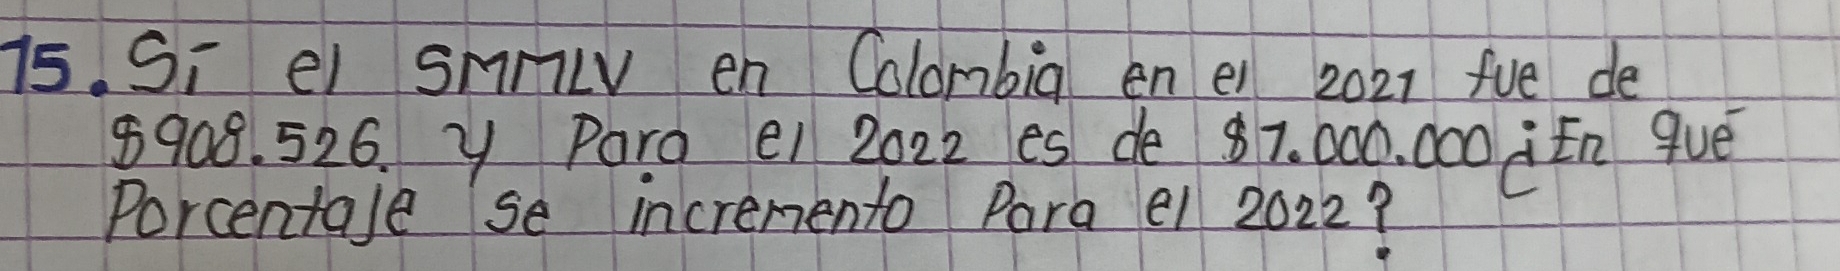 15. Si el SMMLV en Colombia en el 2021 fue de
$908.526. y Para el 2022 es de $1.000.000 ¿En qué
Porcentaje se incremento Para el 2022?